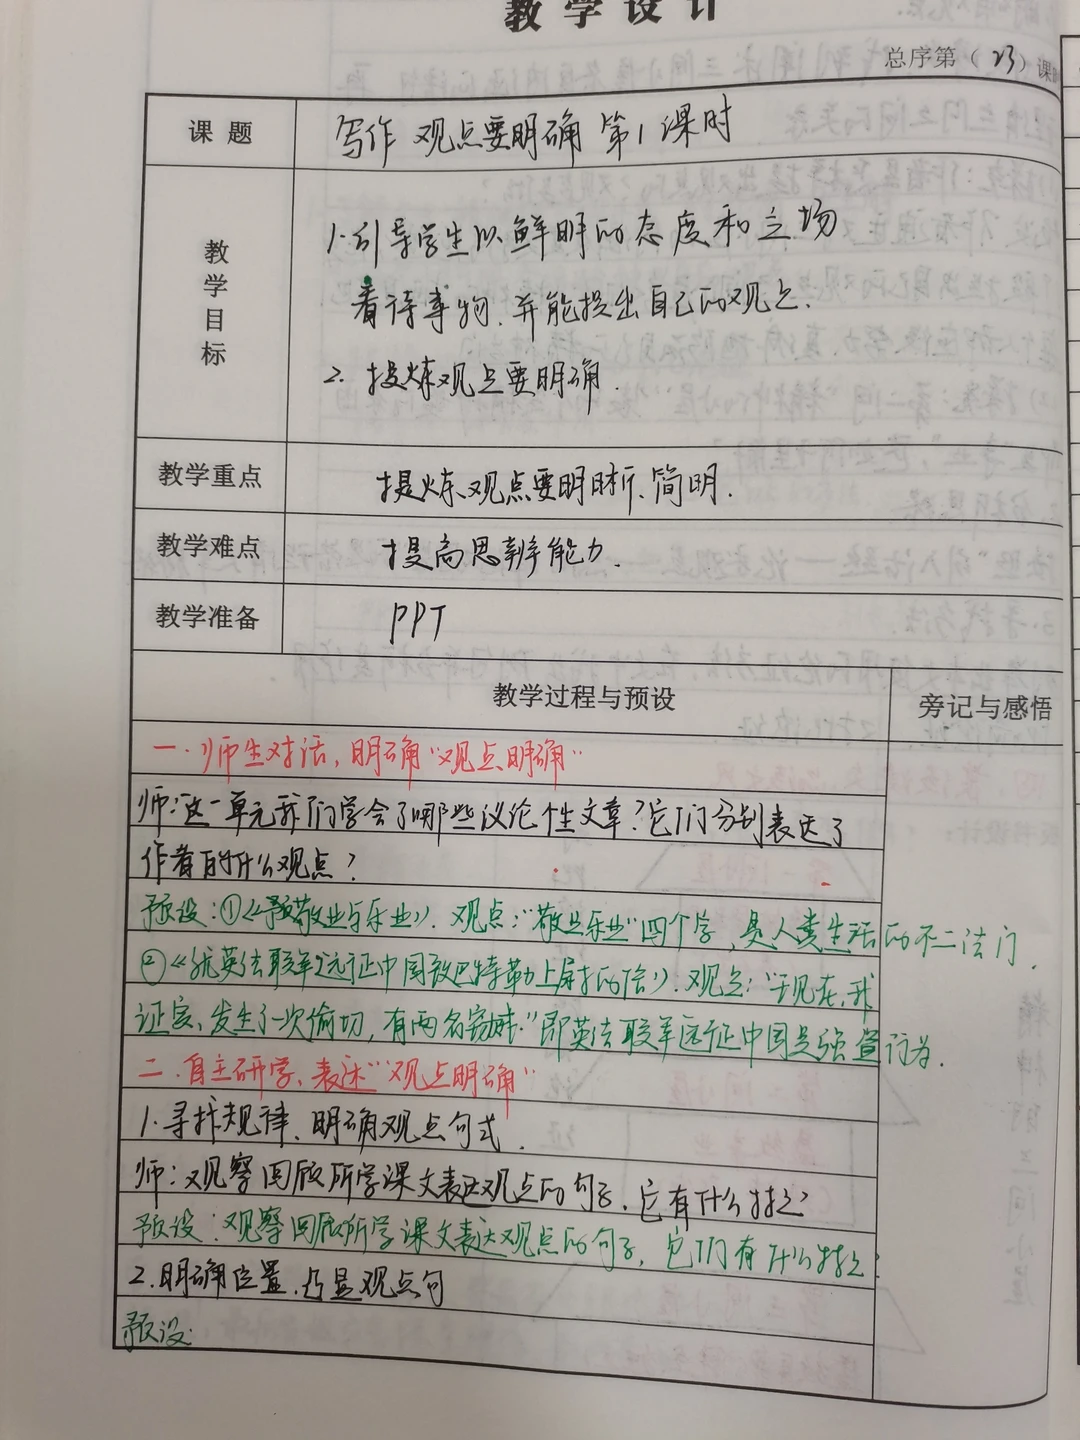 教学设计
总序第（23）课时
课题 写作 观点要明确 第1课时
教学目标
1.引导学生以鲜明的态度和立场
看待事物.并能提出自己的观点.
2.提炼观点要明确.
教学重点 提炼观点要明晰、简明.
教学难点 提高思辨能力.
教学准备 PPT
教学过程与预设 旁记与感悟
一.师生对话,明确“观点明确”
师:这一单元我们学会了哪些议论性文章?它们分别表达了
作者的什么观点?
预设:①《敬业与乐业》.观点:“敬业乐业”四个字,是人类生活的不二法门.
②《就英法联军远征中国致巴特勒上尉的信》.观点:“现在,我
证实,发生了一次偷切,有两名窃贼.”即英法联军远征中国是强盗行为.
二.自主研学、表述“观点明确”
1.寻找规律、明确观点句式.
师:观察回顾所学课文表达观点的句子,它有什么特点?
预设:观察回顾所学课文表达观点的句子,它们有什么特点:
2.明确位置.凸显观点句
预设: